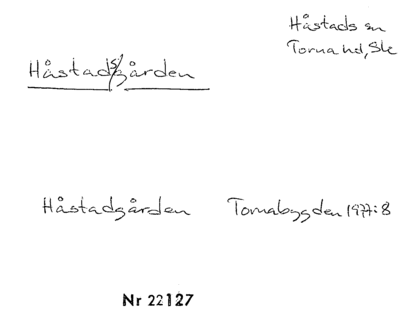 Håstads sn
Torna hd, Sk
Håstadsgården
Håstadgården Tornabygden 1977:8
Nr 22127